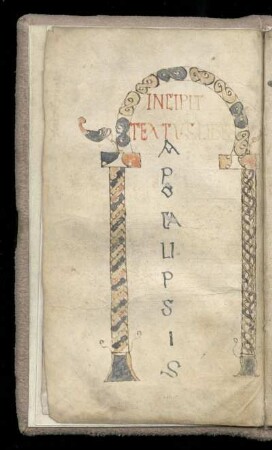 INCIPIT
TEXTUS LIBRI
A
P
O
CA
L
I
P
S
I
S